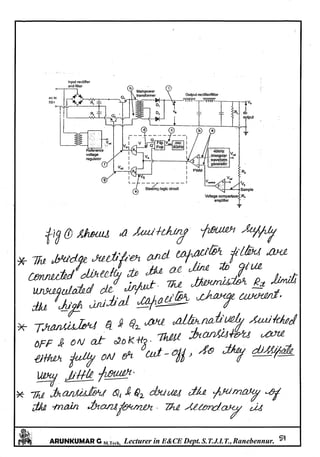 Input rectifier
and filter
Mainpower
transformer
Output rectifier/filter
output
Reference
voltage
regulator
Flip
Flop
PWM
Steering logic circuit
Voltage comparison
amplifier
Sample
fig ① shows a switching power supply
* The bridge rectifier and capacitor filters are
connected directly to the ac line to give
unregulated dc input. The thermistor R1 limits
the high initial capacitor charge current.
* Transistors Q1 & Q2 are alternatively switched
OFF & ON at 20KHz. These transistors are
either fully ON or cut-off, so they dissipate
very little power.
* The transistors Q1 & Q2 drives the primary of
the main transformer. The secondary is
ARUNKUMAR G M.Tech, Lecturer in E&CE Dept. S.T.J.I.T., Ranebennur.